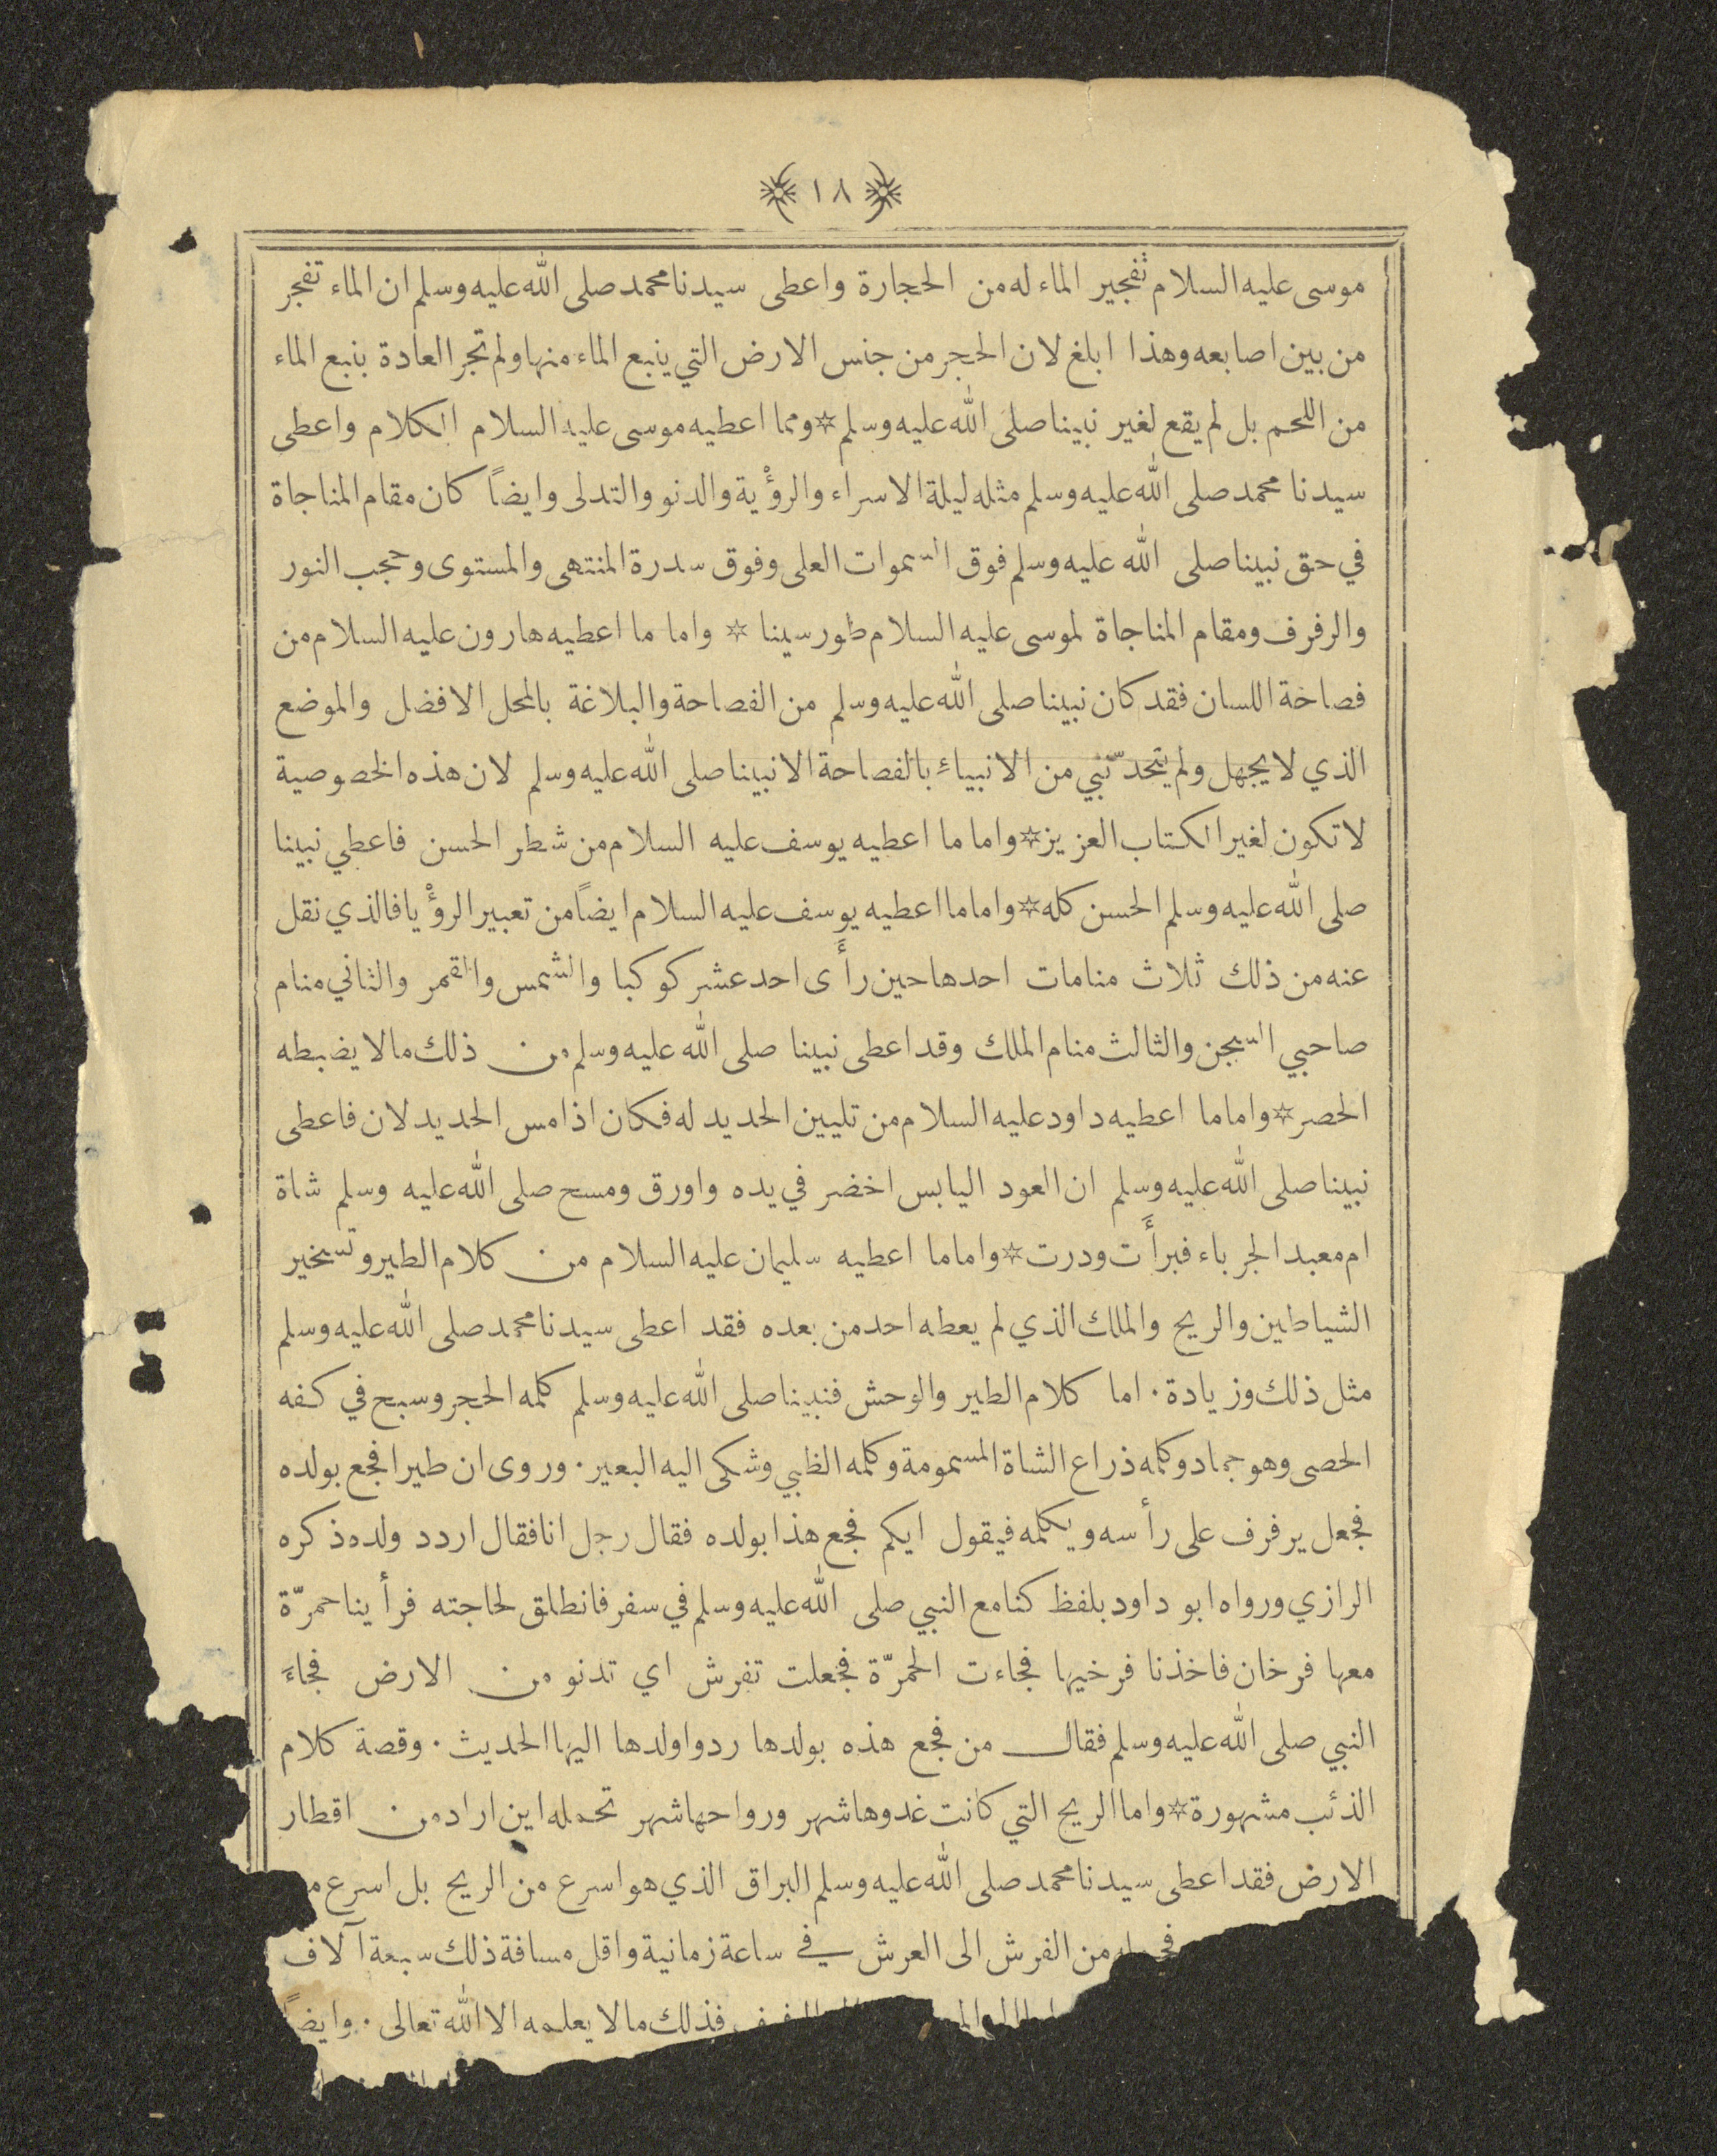 ١٨
موسى عليه السلام تفجير الماء له من الحجارة واعطى سيدنا محمد صلى الله عليه وسلم ان الماء تفجر
من بين اصابعه وهذا ابلغ لان الحجر من جنس الارض التي ينبع الماء منها ولم تجر العادة بنبع الماء
من اللحم بل لم يقع لغير نبينا صلى الله عليه وسلم ☆ ومما اعطيه موسى عليه السلام الكلام واعطى
سيدنا محمد صلى الله عليه وسلم مثله ليلة الاسراء والرؤْية والدنو والتدلى وايضاً كان مقام المناجاة
في حق نبينا صلى الله عليه وسلم فوق السموات العلى وفوق سدرة المنتهى والمستوى وحجب النور
والرفرف ومقام المناجاة لموسى عليه السلام طور سينا ☆ واما ما اعطيه هارون عليه السلام من
فصاحة اللسان فقد كان نبينا صلى الله عليه وسلم من الفصاحة والبلاغة بالمحل الافضل والموضع
الذي لا يجهل ولم يتحدّ نبي من الانبياءِ بالفصاحة الا نبينا صلى الله عليه وسلم لان هذه الخصوصية
لا تكون لغير الكتاب العزيز ☆ واما ما اعطيه يوسف عليه السلام من شطر الحسن فاعطي نبينا
صلى الله عليه وسلم الحسن كله ☆ واما ما اعطيه يوسف عليه السلام ايضاً من تعبير الرؤْيا فالذي نقل
عنه من ذلك ثلاث منامات احدها حين رأَى احد عشر كوكبا والشمس والقمر والثاني منام
صاحبي السجن والثالث منام الملك وقد اعطى نبينا صلى الله عليه وسلم من ذلك ما لا يضبطه
الحصر ☆ واما ما اعطيه داود عليه السلام من تليين الحديد له فكان اذا مس الحديد لان فاعطى
نبينا صلى الله عليه وسلم ان العود اليابس اخضر في يده واورق ومسح صلى الله عليه وسلم شاة
ام معبد الجرباء فبرأَت ودرت ☆ واما ما اعطيه سليمان عليه السلام من كلام الطير وتسخير
الشياطين والريح والملك الذي لم يعطه احد من بعده فقد اعطى سيدنا محمد صلى الله عليه وسلم
مثل ذلك وزيادة . اما كلام الطير والوحش فنبينا صلى الله عليه وسلم كلمه الحجر وسبح في كفه
الحصى وهو جماد وكلمه ذراع الشاة المسمومة وكلمه الظبي وشكى اليه البعير . وروى ان طيرا فجع بولده
فجعل يرفرف على رأسه ويكلمه فيقول ايكم فجع هذا بولده فقال رجل انا فقال اردد ولده ذكره
الرازي ورواه ابو داود بلفظ كنا مع النبي صلى الله عليه وسلم في سفر فانطلق لحاجته فرأينا حمرّة
معها فرخان فاخذنا فرخيها فجاءت الحمرّة فجعلت تفرش اي تدنو من الارض فجاءَ
النبي صلى الله عليه وسلم فقال من فجع هذه بولدها ردوا ولدها اليها الحديث . وقصة كلام
الذئب مشهورة ☆ واما الريح التي كانت غدوها شهر ورواحها شهر تحمله اين اراد من اقطار
الارض فقد اعطى سيدنا محمد صلى الله عليه وسلم البراق الذي هو اسرع من الريح بل اسرع
من الفرش الى العرش في ساعة زمانية واقل مسافة ذلك سبعة آلاف
فذلك ما لا يعلمه الا الله تعالى . وايضاً